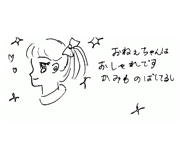 おねえちゃんは
おしゃれです
かみものばしてるし